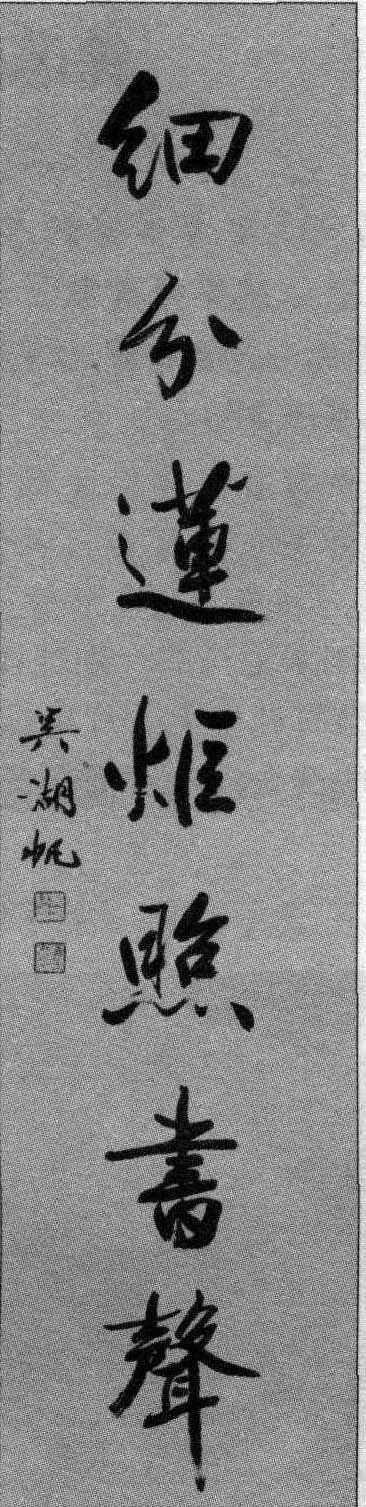 細分蓮炬照書聲
吳湖帆